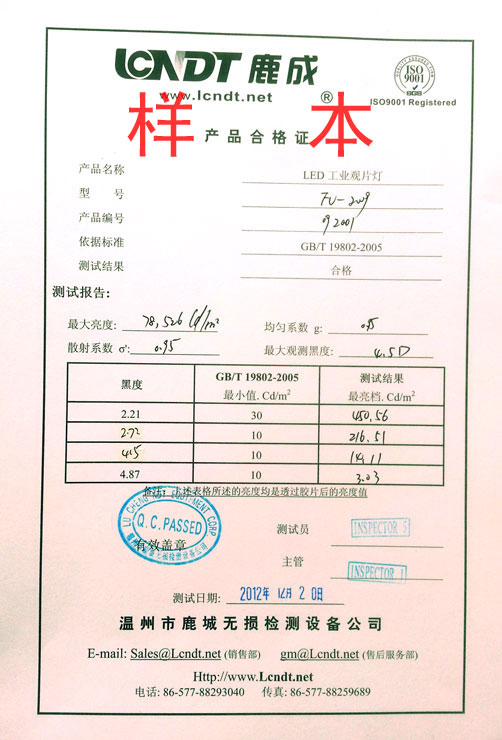 LCNDT 鹿成
www.lcndt.net ®
ISO 9001
SGS
ISO9001 Registered
样 本
产品合格证
产品名称 LED 工业观片灯
型 号 FU-2009
产品编号 092001
依据标准 GB/T 19802-2005
测试结果 合格
测试报告:
最大亮度: 78,526 Cd/m² 均匀系数 g: 0.85
散射系数 σ': 0.95 最大观测黑度: 4.5D
黑度 GB/T 19802-2005 最小值. Cd/m² 测试结果 最亮档. Cd/m²
2.21 30 450.56
2.72 10 216.51
4.5 10 14.11
4.87 10 3.03
备注: 上述表格所述的亮度均是透过胶片后的亮度值
Q.C.PASSED
有效盖章
测试员 INSPECTOR 5
主管 INSPECTOR 1
测试日期: 2012年 12月 20日
温州市鹿城无损检测设备公司
E-mail: Sales@Lcndt.net (销售部) gm@Lcndt.net (售后服务部)
Http://www.Lcndt.net
电话: 86-577-88293040 传真: 86-577-88259689